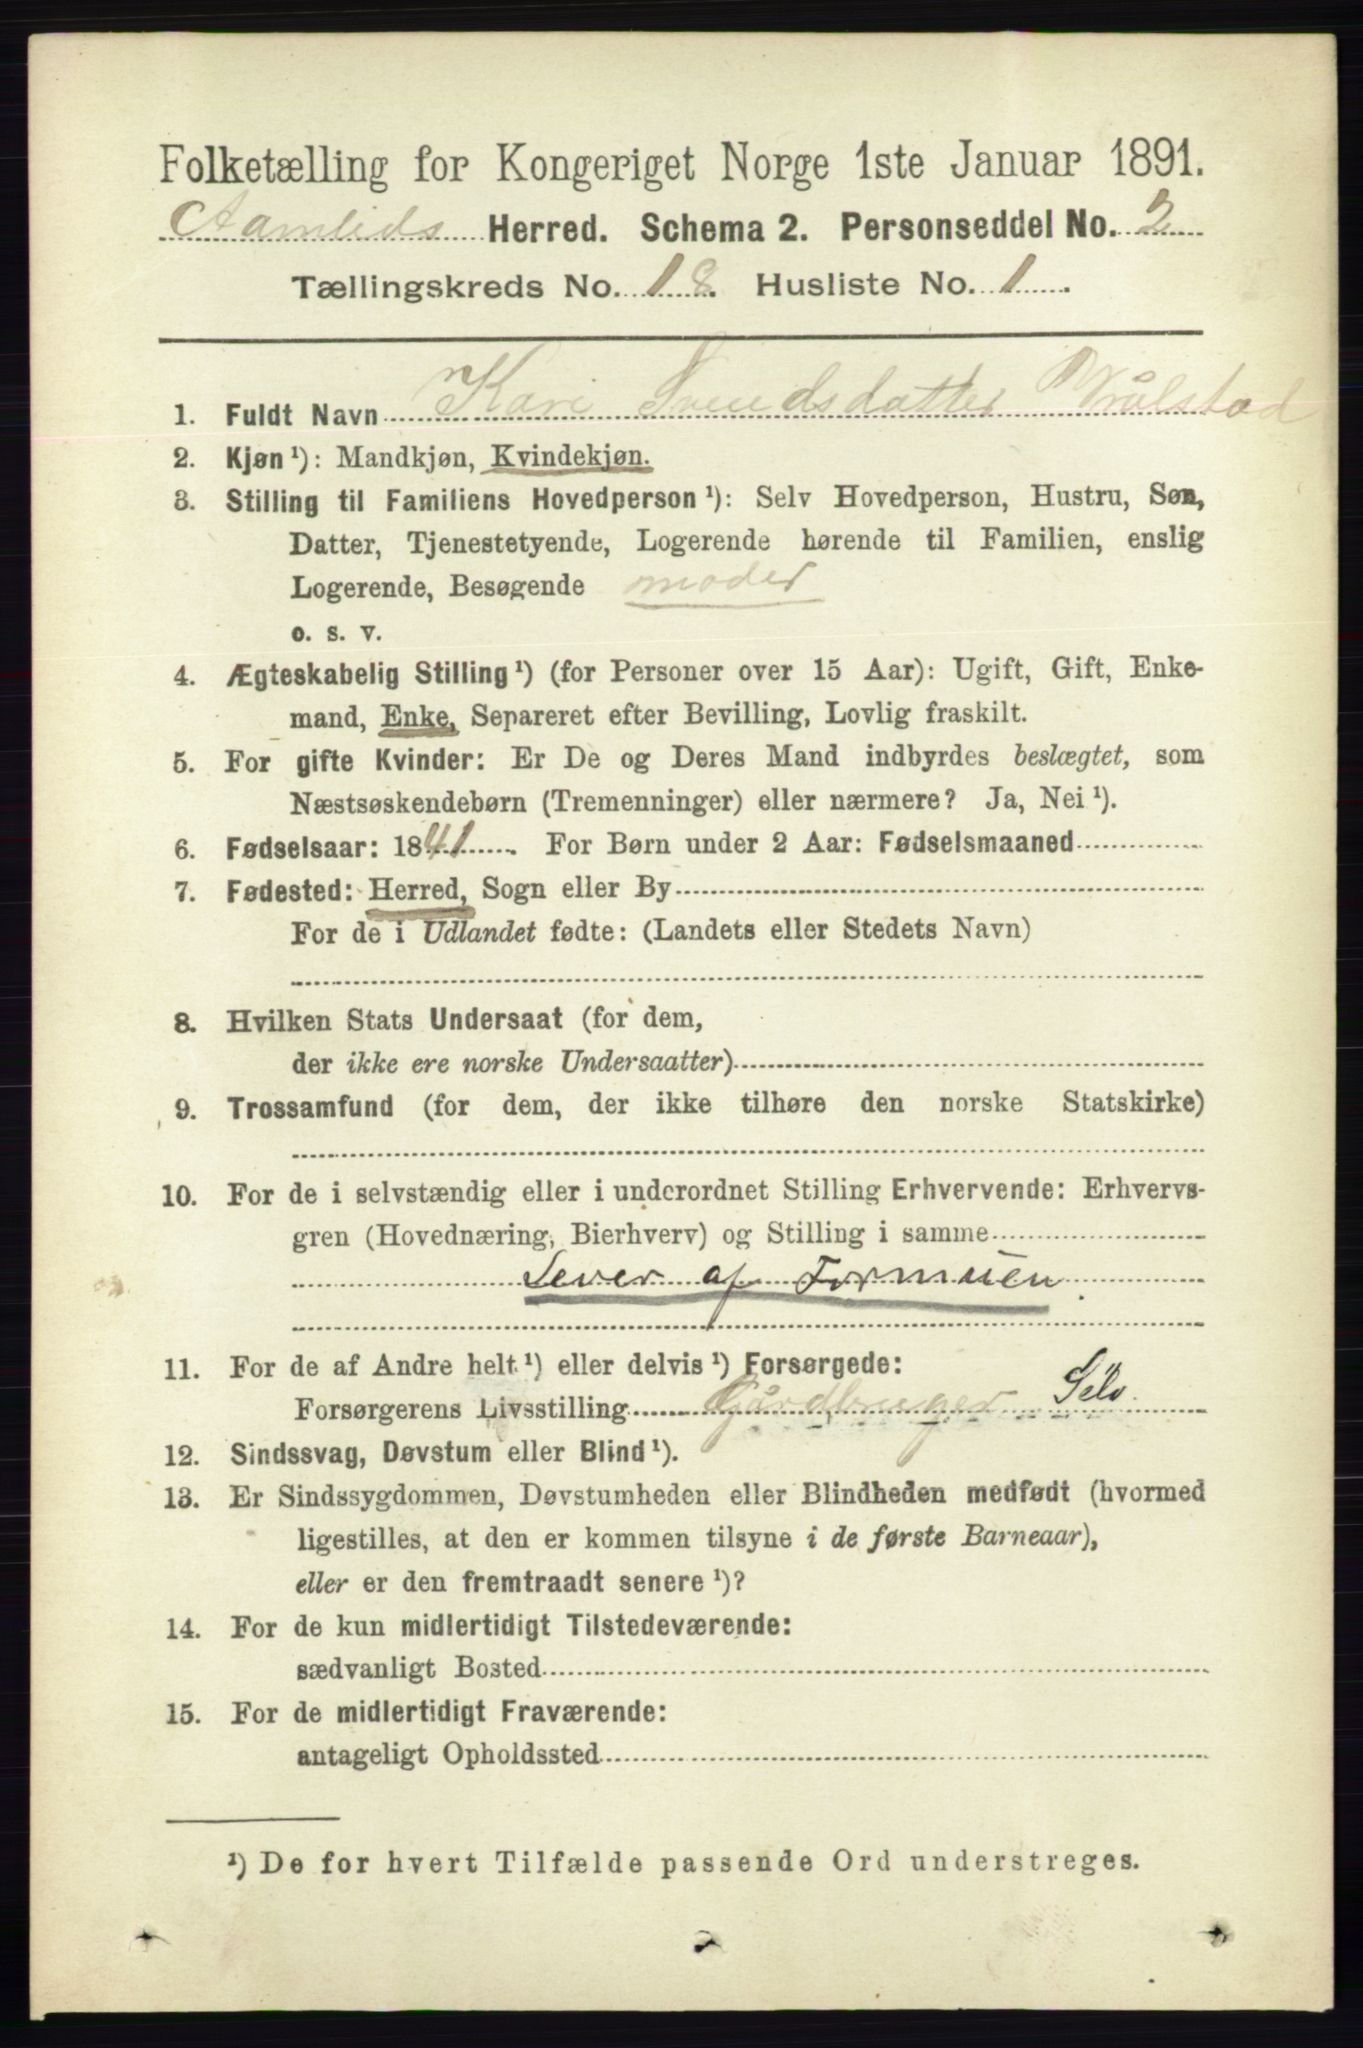 Folketælling for Kongeriget Norge 1ste Januar 1891.
Aamlids Herred. Schema 2. Personseddel No. 2
Tællingskreds No. 18. Husliste No. 1.
1. Fuldt Navn Kari Svendsdatter Vrålstad
2. Kjøn ¹): Mandkjøn, Kvindekjøn.
3. Stilling til Familiens Hovedperson ¹): Selv Hovedperson, Hustru, Søn,
Datter, Tjenestetyende, Logerende hørende til Familien, enslig
Logerende, Besøgende moder
o. s. v.
4. Ægteskabelig Stilling ¹) (for Personer over 15 Aar): Ugift, Gift, Enke-
mand, Enke, Separeret efter Bevilling, Lovlig fraskilt.
5. For gifte Kvinder: Er De og Deres Mand indbyrdes beslægtet, som
Næstsøskendebørn (Tremenninger) eller nærmere? Ja, Nei ¹).
6. Fødselsaar: 1841. For Børn under 2 Aar: Fødselsmaaned
7. Fødested: Herred, Sogn eller By
For de i Udlandet fødte: (Landets eller Stedets Navn)
8. Hvilken Stats Undersaat (for dem,
der ikke ere norske Undersaatter)
9. Trossamfund (for dem, der ikke tilhøre den norske Statskirke)
10. For de i selvstændig eller i underordnet Stilling Erhvervende: Erhvervs-
gren (Hovednæring, Bierhverv) og Stilling i samme
Lever af Formuen
11. For de af Andre helt ¹) eller delvis ¹) Forsørgede:
Forsørgerens Livsstilling Gårdbruger Selv.
12. Sindssvag, Døvstum eller Blind ¹).
13. Er Sindssygdommen, Døvstumheden eller Blindheden medfødt (hvormed
ligestilles, at den er kommen tilsyne i de første Barneaar),
eller er den fremtraadt senere ¹)?
14. For de kun midlertidigt Tilstedeværende:
sædvanligt Bosted
15. For de midlertidigt Fraværende:
antageligt Opholdssted
¹) De for hvert Tilfælde passende Ord understreges.